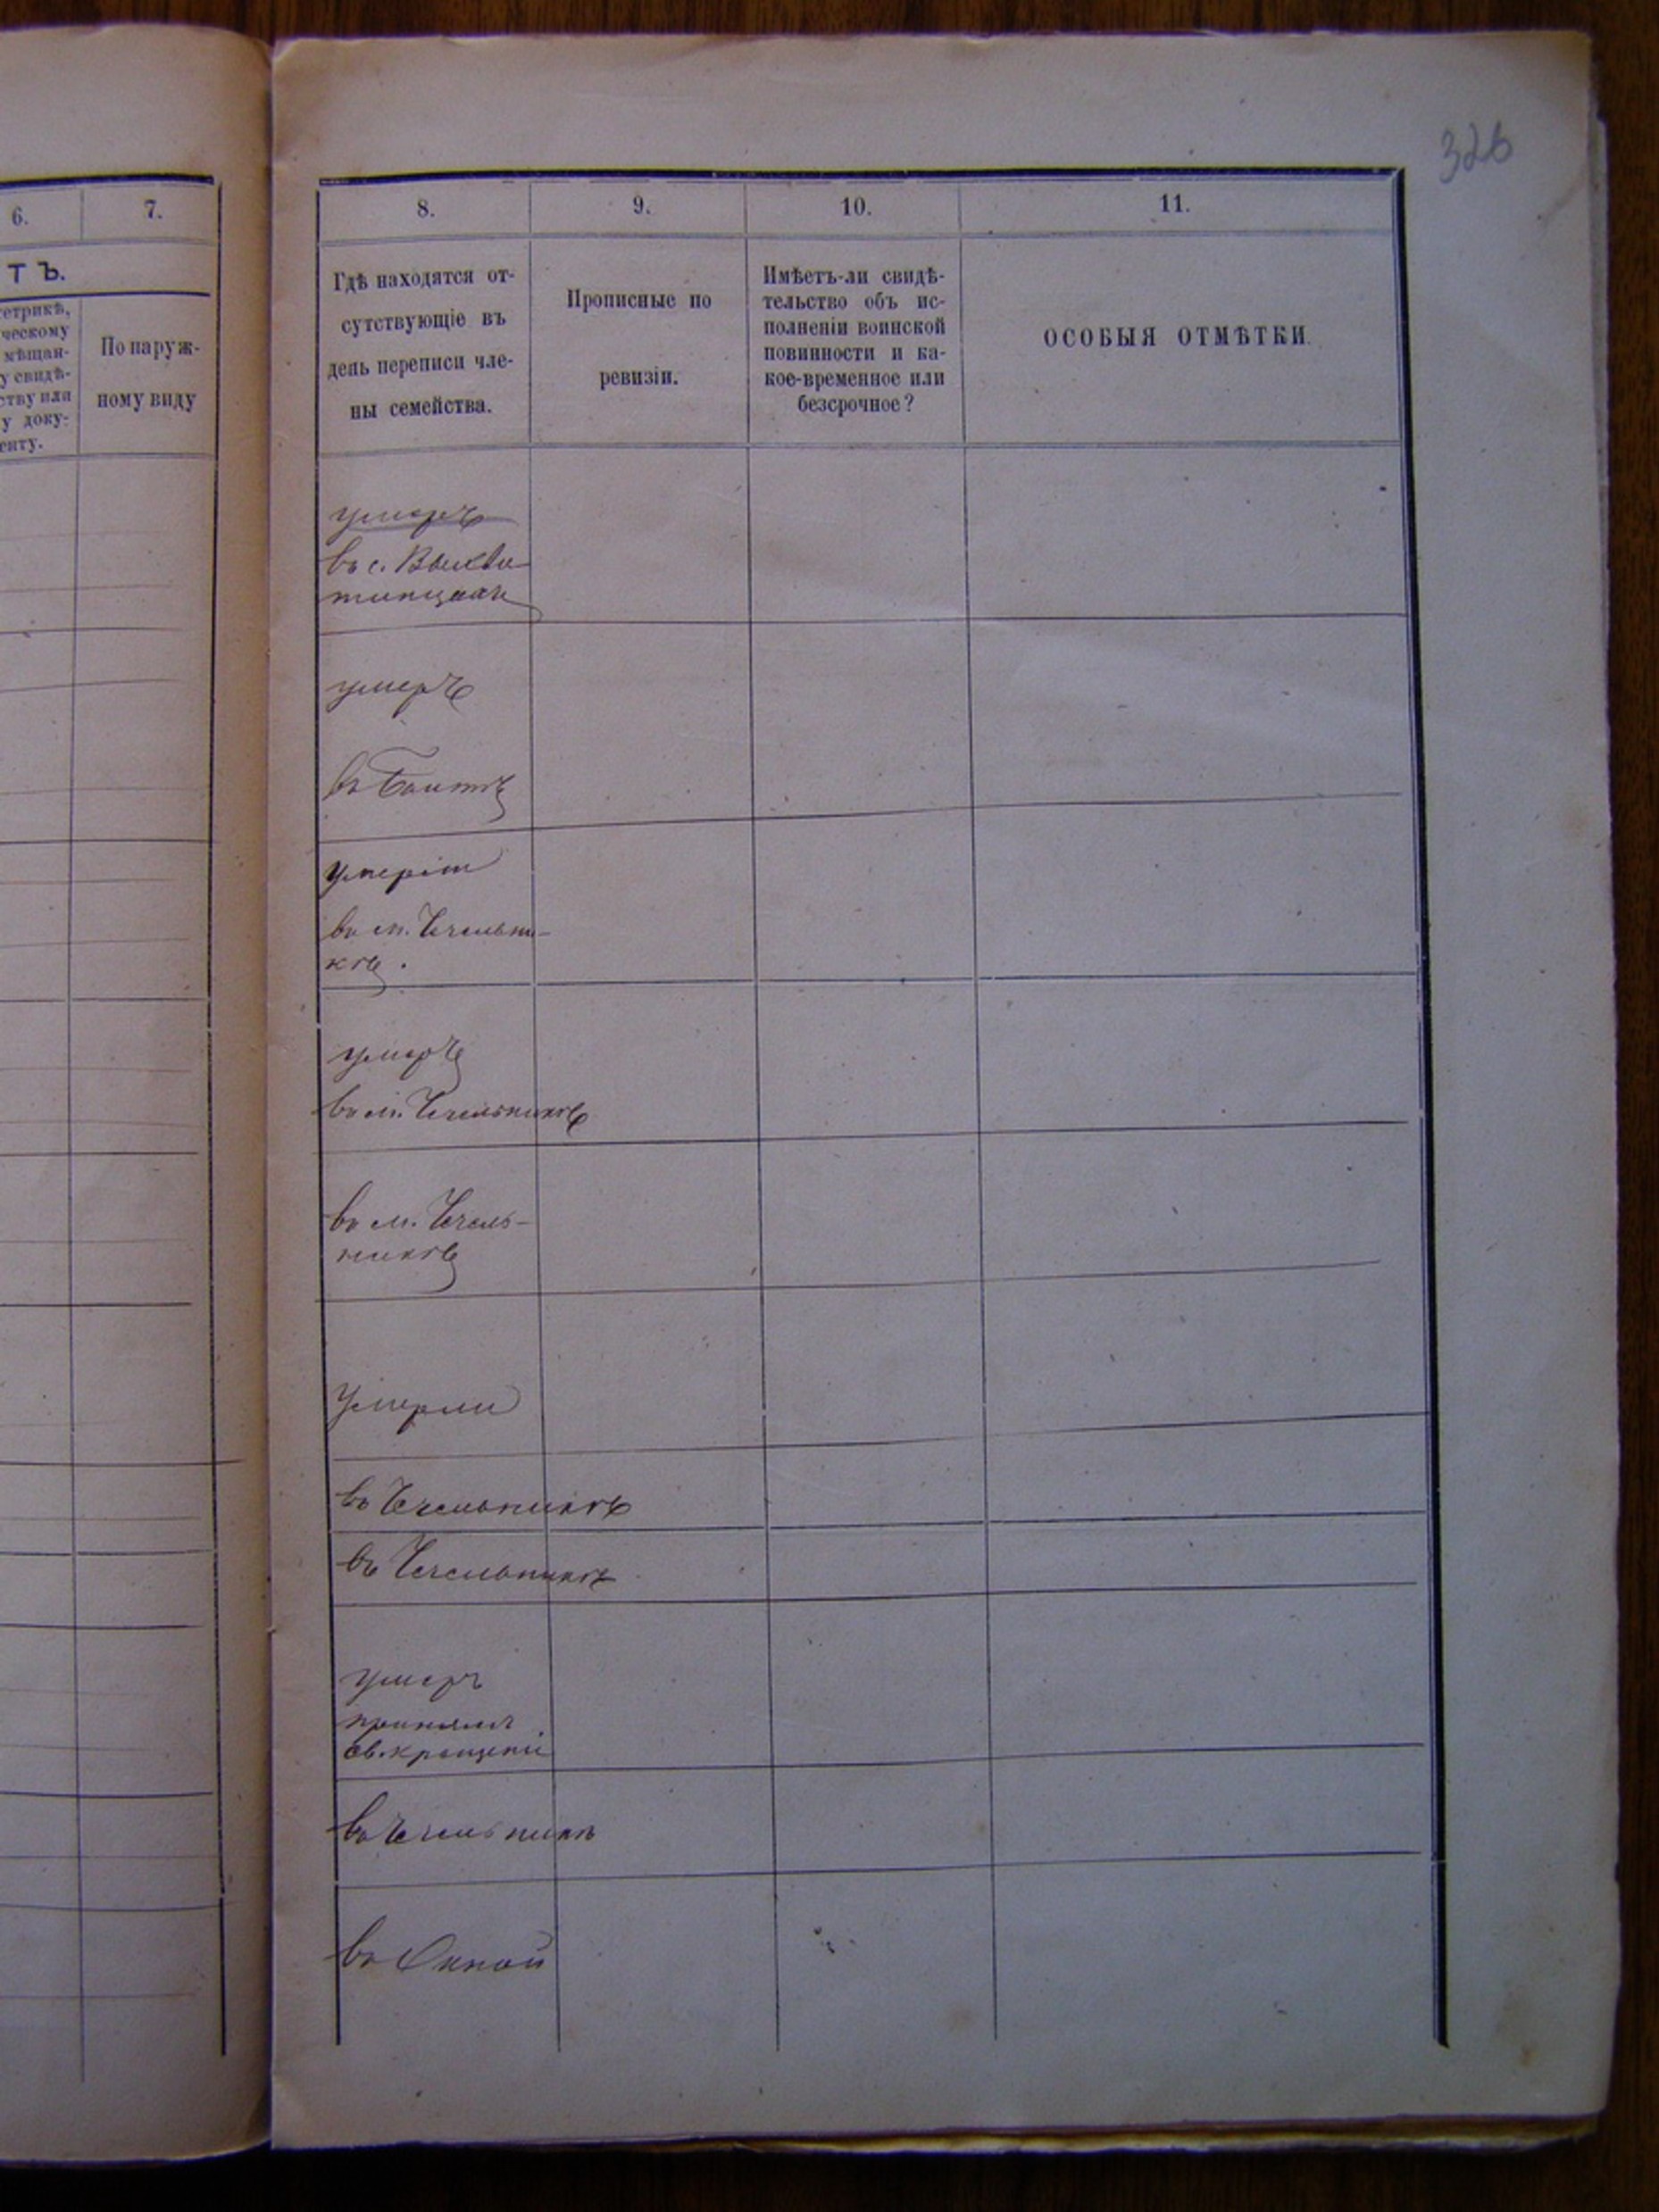 326
6.
7.
ТЪ.
етрикѣ,
ческому
мѣщан-
у свидѣ-
ству или
у доку-
енту.
По наруж-
ному виду
8.
9.
10.
11.
Гдѣ находятся от-
сутствующіе въ
день переписи чле-
ны семейства.
Прописные по
ревизіи.
Имѣетъ-ли свидѣ-
тельство объ ис-
полненіи воинской
повинности и ка-
кое-временное или
безсрочное?
ОСОБЫЯ ОТМѢТКИ.
умеръ
въ с.
умеръ
въ Балтѣ
въ м. Чечельни-
кѣ.
умеръ
въ м. Чечельникѣ
въ м. Чечель-
никѣ
Умерли
въ Чечельникѣ
въ Чечельникѣ
умеръ
принялъ
св. крещеніе
въ Чечельникѣ
въ Окной